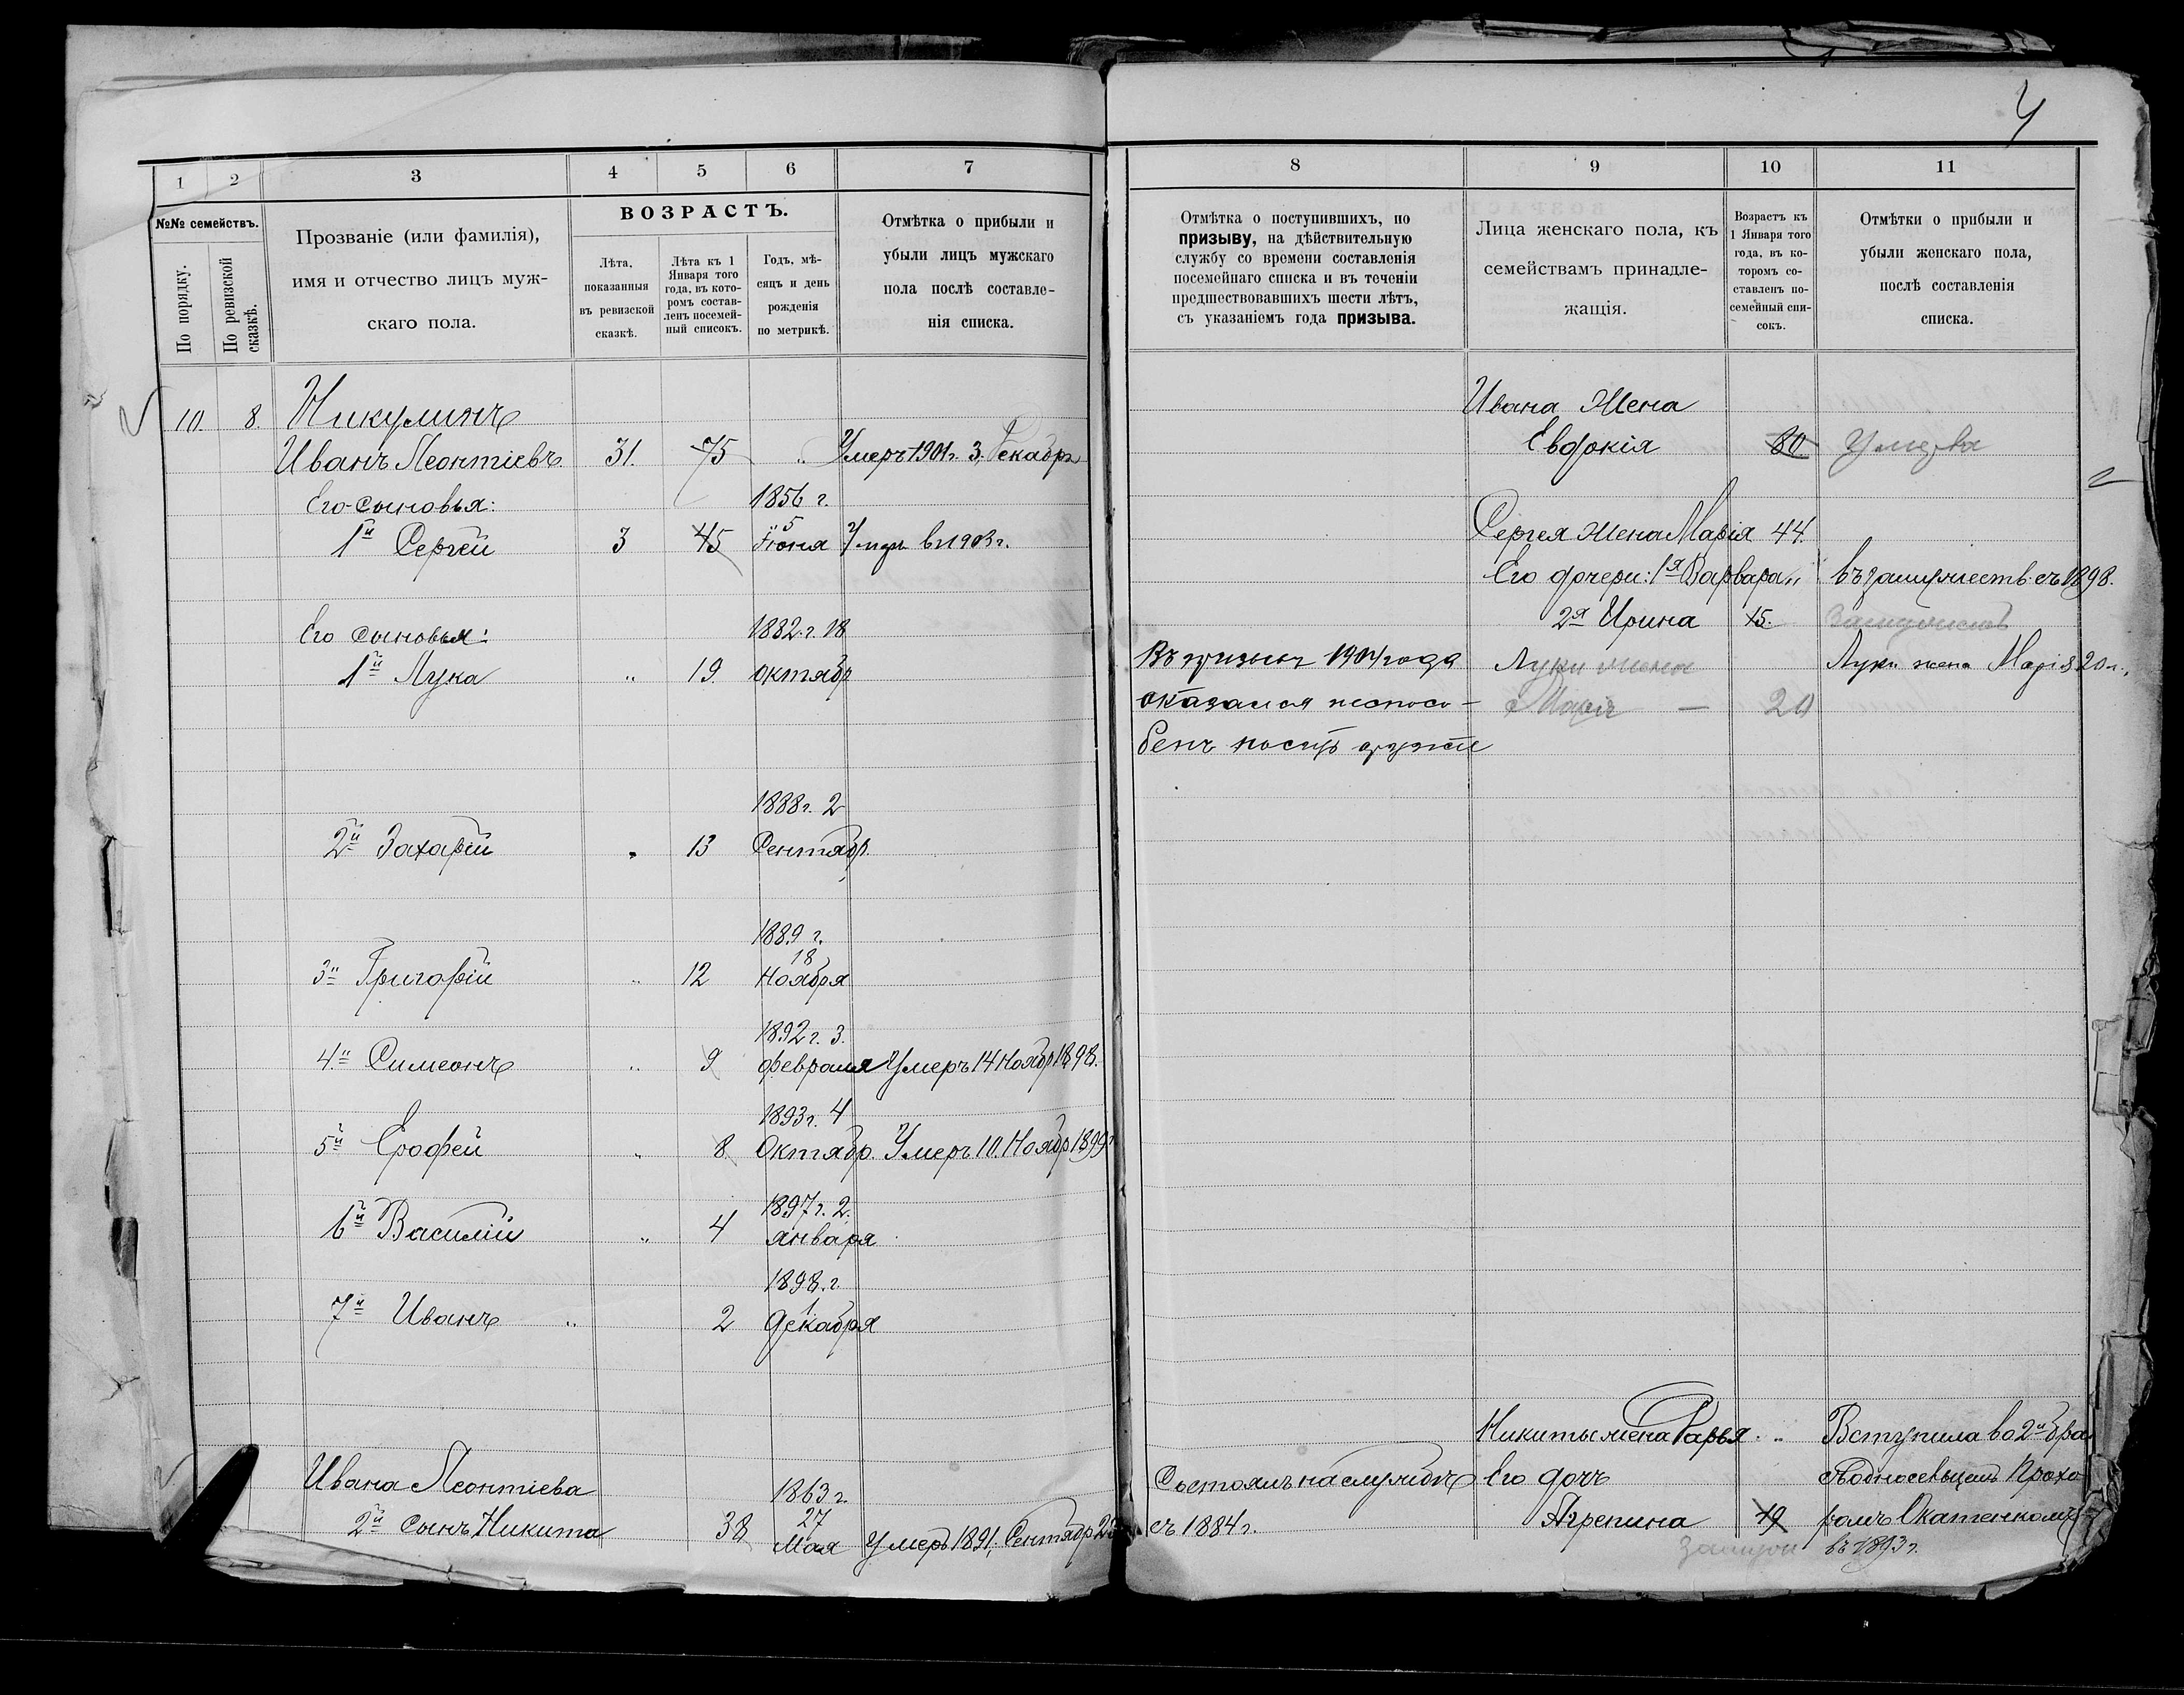 4
1 2 3 4 5 6 7
№№ семействъ.
По порядку.
По ревизской сказкѣ.
Прозваніе (или фамилія),
имя и отчество лицъ муж-
скаго пола.
ВОЗРАСТЪ.
Лѣта,
показанныя
въ ревизской
сказкѣ.
Лѣта къ 1
Января того
года, въ кото-
ромъ состав-
ленъ посемей-
ный списокъ.
Годъ, мѣ-
сяцъ и день
рожденія
по метрикѣ.
Отмѣтка о прибыли и
убыли лицъ мужскаго
пола послѣ составле-
нія списка.
10. 8. Никулинъ
Иванъ Леонтіевъ. 31. 75 „ Умеръ 1901 г. 3. Декабря
Его сыновья: 1856 г.
5
1й Сергѣй 3 45 Іюня Умеръ въ 1903 г.
Его сыновья: 1882 г. 18
1й Лука „ 19 октябр
1888 г. 2
2й Захарій „ 13 Сентябр.
1889 г.
18
3й Григорій „ 12 Ноября
1892 г. 3.
4й Симеонъ „ 9 февраля Умеръ 14 Ноябр 1898.
1893 г. 4
5й Ерофей „ 8. Октябр. Умеръ 10. Ноябр 1899 г
1897 г. 2.
6й Василій „ 4 января
1898. г.
1
7й Иванъ „ 2 декабря
Ивана Леонтіева 1863 г.
27
2й сынъ Никита 38 Мая Умеръ 1891, Сентябр 25
8 9 10 11
Отмѣтка о поступившихъ, по
призыву, на дѣйствительную
службу со времени составленія
посемейнаго списка и въ теченіи
предшествовавшихъ шести лѣтъ,
съ указаніемъ года призыва.
Лица женскаго пола, къ
семействамъ принадле-
жащія.
Возрастъ къ
1 Января того
года, въ ко-
торомъ со-
ставленъ по-
семейный спи-
сокъ.
Отмѣтки о прибыли и
убыли женскаго пола,
послѣ составленія
списка.
Ивана жена
Евдокія 80 Умерла
Сергея жена Марія 44.
Его дочери: 1я Варвара „ въ замужеств. съ 1898.
2я Ирина 15.
Въ призывъ 1904 года Луки жена Луки жена Марія 20 л.
оказался неспосо- Марія — 20
бенъ носить оружіе
Никиты жена Дарья „ Вступила во 2й бра
Состоялъ на службѣ Его дочь съ односельцемъ Прохо
съ 1884 г. Агрепина 19 ромъ Окатенкомъ
замуж въ 1893 г.